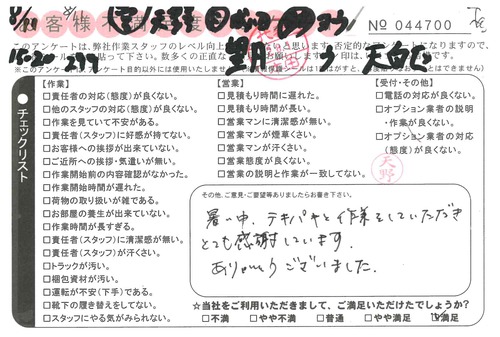 お客様不満足度
№ 044700
このアンケートは、弊社作業スタッフのレベル向上
15:20
※このアンケートは、アンケート目的以外には使用いたしません
チェックリスト
【作業】
□責任者の対応(態度)が良くない。
□他のスタッフの対応(態度)が良くない。
□作業を見ていて不安がある。
□責任者(スタッフ)に好感が持てない。
□お客様への挨拶が出来ていない。
□ご近所への挨拶・気遣いが無い。
□作業開始前の内容確認がなかった。
□作業開始時間が遅れた。
□荷物の取り扱いが雑である。
□お部屋の養生が出来ていない。
□作業時間が長すぎる。
□責任者(スタッフ)に清潔感が無い。
□責任者(スタッフ)が汗くさい。
□トラックが汚い。
□梱包資材が汚い。
□運転が不安(下手)である。
□靴下の履き替えをしてない。
□スタッフにやる気がみられない。
【営業】
□見積もり時間に遅れた。
□見積もり時間が長い。
□営業マンに清潔感が無い。
□営業マンが煙草くさい。
□営業マンが汗くさい。
□営業態度が良くない。
□営業の説明と作業が一致してない。
【受付・その他】
□電話の対応が良くない。
□オプション業者の説明
・作業が良くない。
□オプション業者の対応
(態度)が良くない。
天野
その他、ご意見・ご要望等ありましたらお書き下さい。
暑い中、テキパキと作業をしていただき
とても感謝しています。
ありがとうございました。
☆当社をご利用いただきまして、ご満足いただけたでしょうか?
□不満 □やや不満 □普通 □やや満足 ☑満足